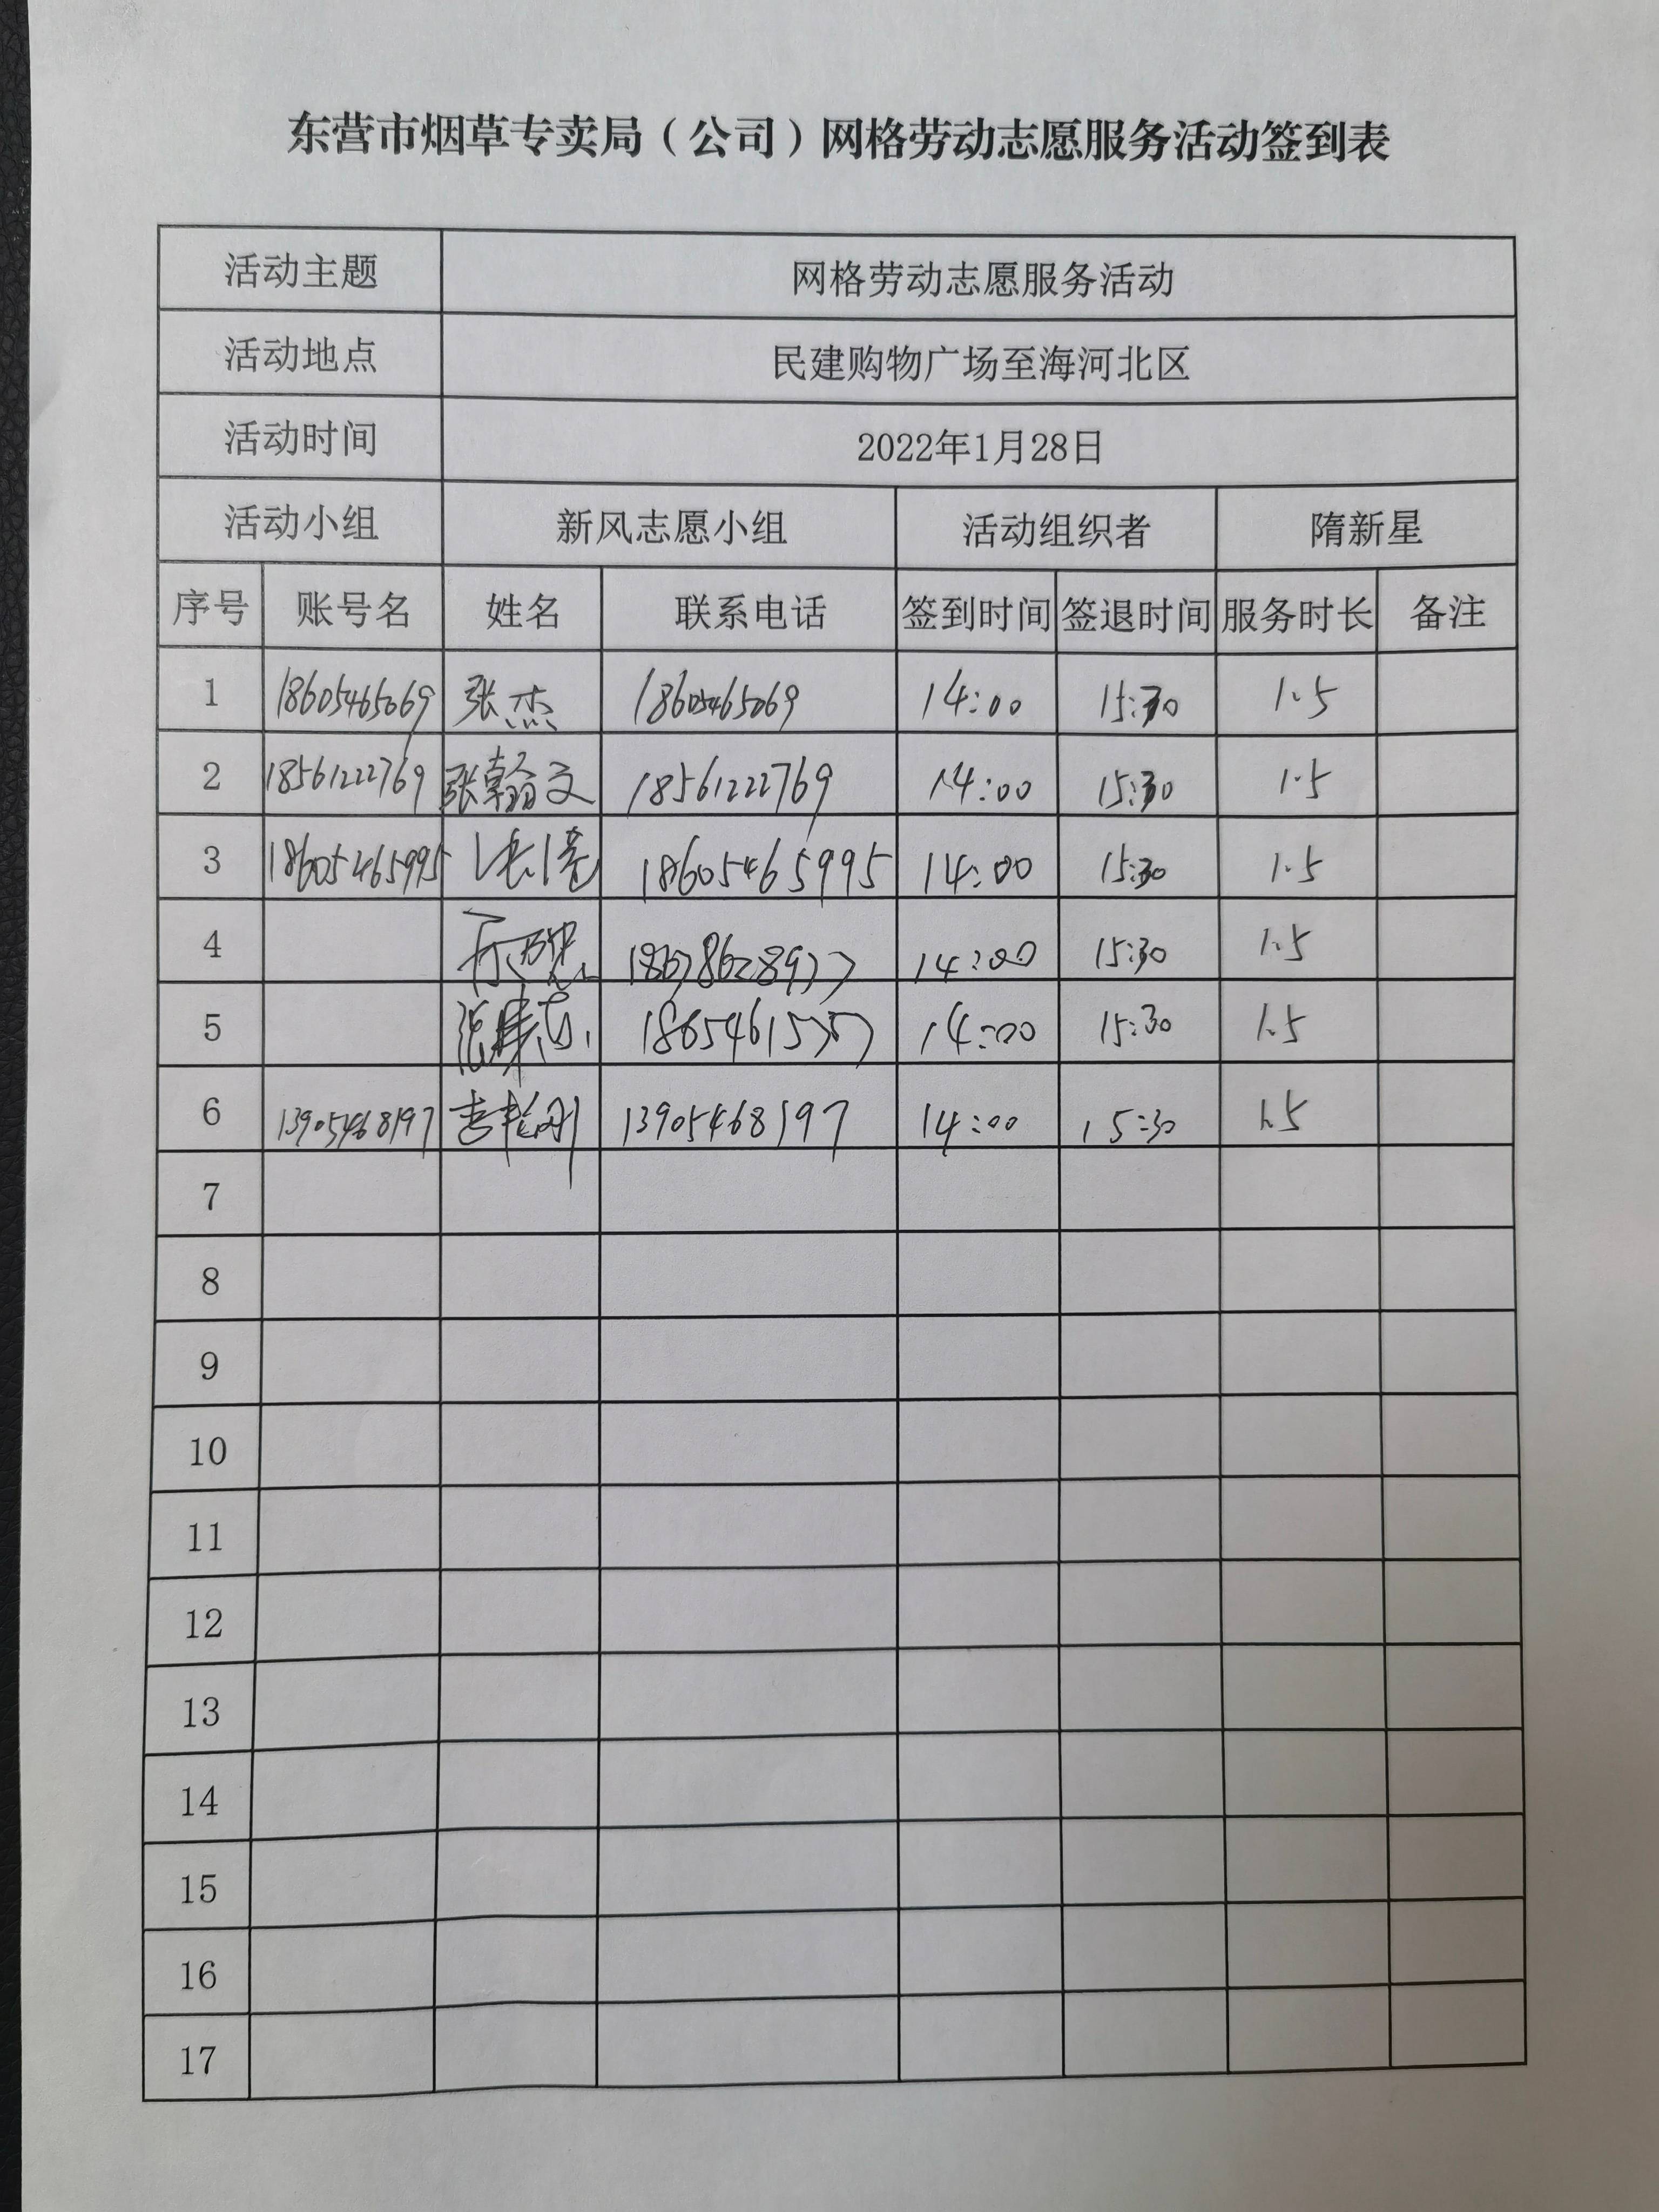 东营市烟草专卖局（公司）网格劳动志愿服务活动签到表
活动主题 网格劳动志愿服务活动
活动地点 民建购物广场至海河北区
活动时间 2022年1月28日
活动小组 新风志愿小组 活动组织者 隋新星
序号 账号名 姓名 联系电话 签到时间 签退时间 服务时长 备注
1 18605465069 张杰 18605465069 14:00 15:30 1.5
2 18561222769 张翰文 18561222769 14:00 15:30 1.5
3 18605465995 18605465995 14:00 15:30 1.5
4 14:00 15:30 1.5
5 14:00 15:30 1.5
6 13905468197 13905468197 14:00 15:30 1.5
7
8
9
10
11
12
13
14
15
16
17